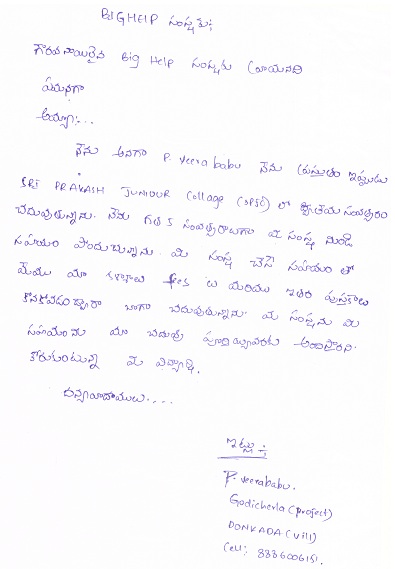 BIGHELP సంస్థకు;
గౌరవనీయులైన Big Help సంస్థకు వ్రాయునది
ఏమనగా
అయ్యా:...
నేను అనగా P. veerababu నేను ప్రస్తుతం ఇప్పుడు
SRI PRAKASH JUNIOUR Collage (SPSE) లో ద్వితీయ సంవత్సరం
చదువుతున్నాను. నేను గత 5 సంవత్సరాలుగా మీ సంస్థ నుండి
సహాయం పొందుచున్నాను. మీ సంస్థ చేసే సహాయం తో
మేము మా కళాశాల fees లు మరియు ఇతర పుస్తకాలు
కొనుకోవడం ద్వారా బాగా చదువుతున్నాను. మీ సంస్థను మీ
సహాయంను మా చదువు పూర్తి అయ్యేవరకు అందిస్తారని
కోరుకుంటున్న మీ విద్యార్థి.
ధన్యవాదాములు....
ఇట్లు :-
P. veerababu.
Godicherla (project)
DONKADA (vill)
Cell: 8886006151.